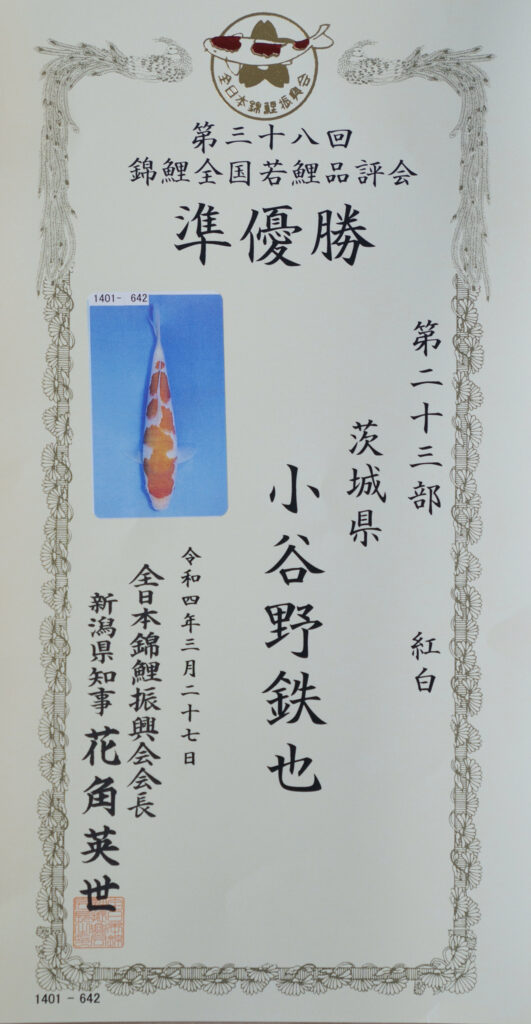 全日本錦鯉振興会
第三十八回
錦鯉全国若鯉品評会
準優勝
1401- 642
第二十三部 紅白
茨城県
小谷野鉄也
令和四年三月二十七日
全日本錦鯉振興会会長
新潟県知事 花角英世
1401 - 642